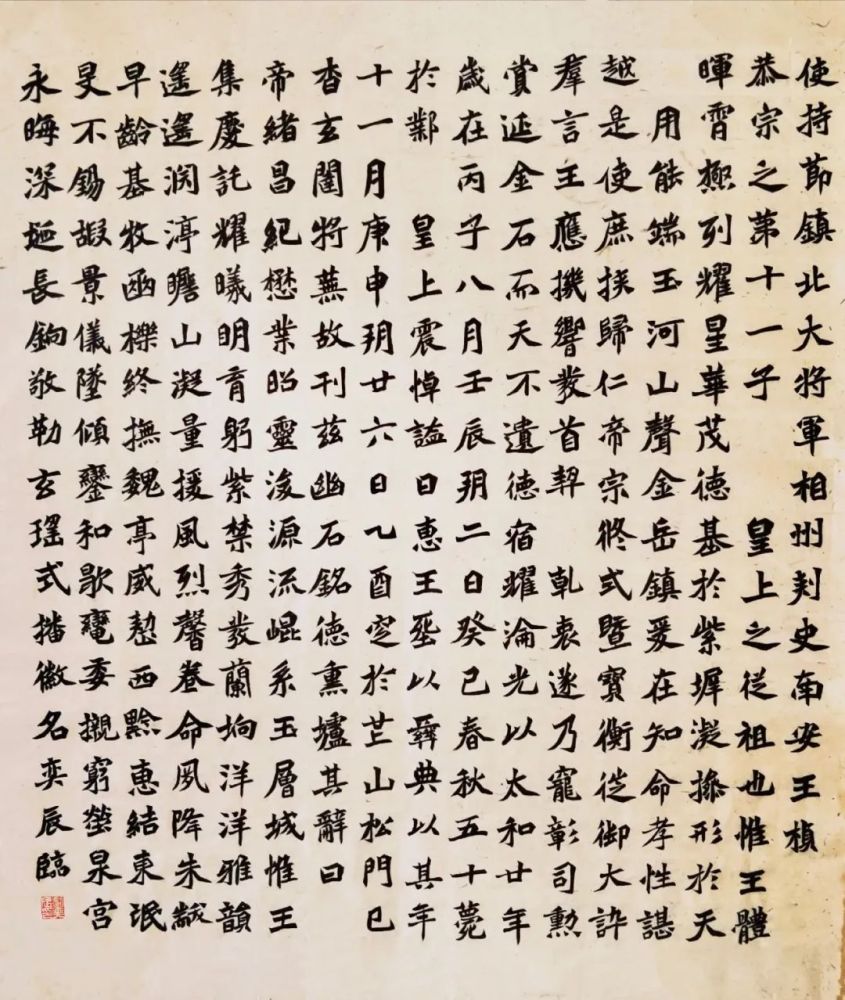 使持節鎮北大將軍相州刾史南安王楨
恭宗之第十一子 皇上之從祖也惟王體
暉霄極列耀星華茂德基於紫墀凝操形於天
用能端玉河山聲金岳鎮爰在知命孝性諶
越是使庶族歸仁帝宗終式暨寶衡徙御大訏
羣言王應機響發首契 乹衷遂乃寵彰司勲
賞延金石而天不遺德宿耀淪光以太和廿年
歲在丙子八月壬辰朔二日癸巳春秋五十薨
於鄴 皇上震悼謚曰惠王塟以彝典以其年
十一月庚申朔廿六日乙酉窆於芒山松門已
杳玄闥將蕪故刊兹幽石銘德熏壚其辭曰
帝緒昌紀懋業昭靈浚源流崐系玉層城惟王
集慶託耀曦明育躬紫禁秀發蘭坰洋洋雅韻
遙遙淵渟瞻山凝量援風烈馨卷命夙降朱黻
早齡基牧函櫟終撫魏亭威愸西黔惠結東氓
旻不錫嘏景儀墜傾鑾和歇委櫬窮塋泉宮
永晦深埏長鉤敬勒玄瑤式播徽名奕辰臨